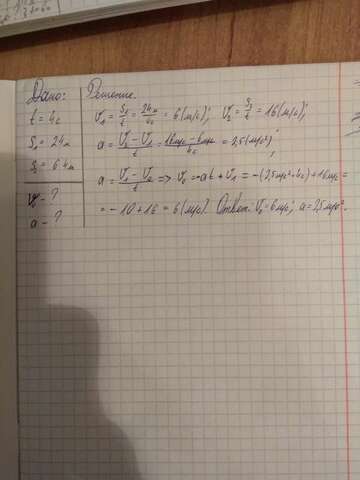 Дано:
t = 4с
S₁ = 24м
S₂ = 64м
V₀ - ?
a - ?
Решение.
V₁ = S₁/t = 24м/4с = 6(м/с); V₂ = S₂/t = 16(м/с);
a = (V₂ - V₁)/t = (16м/с - 6м/с)/4с = 2,5(м/с²);
a = (V₁ - V₀)/t => V₀ = -at + V₁ = -(2,5м/с² · 4с) + 16м/с =
= - 10 + 16 = 6(м/с). Ответ: V₀ = 6м/с; a = 2,5м/с².